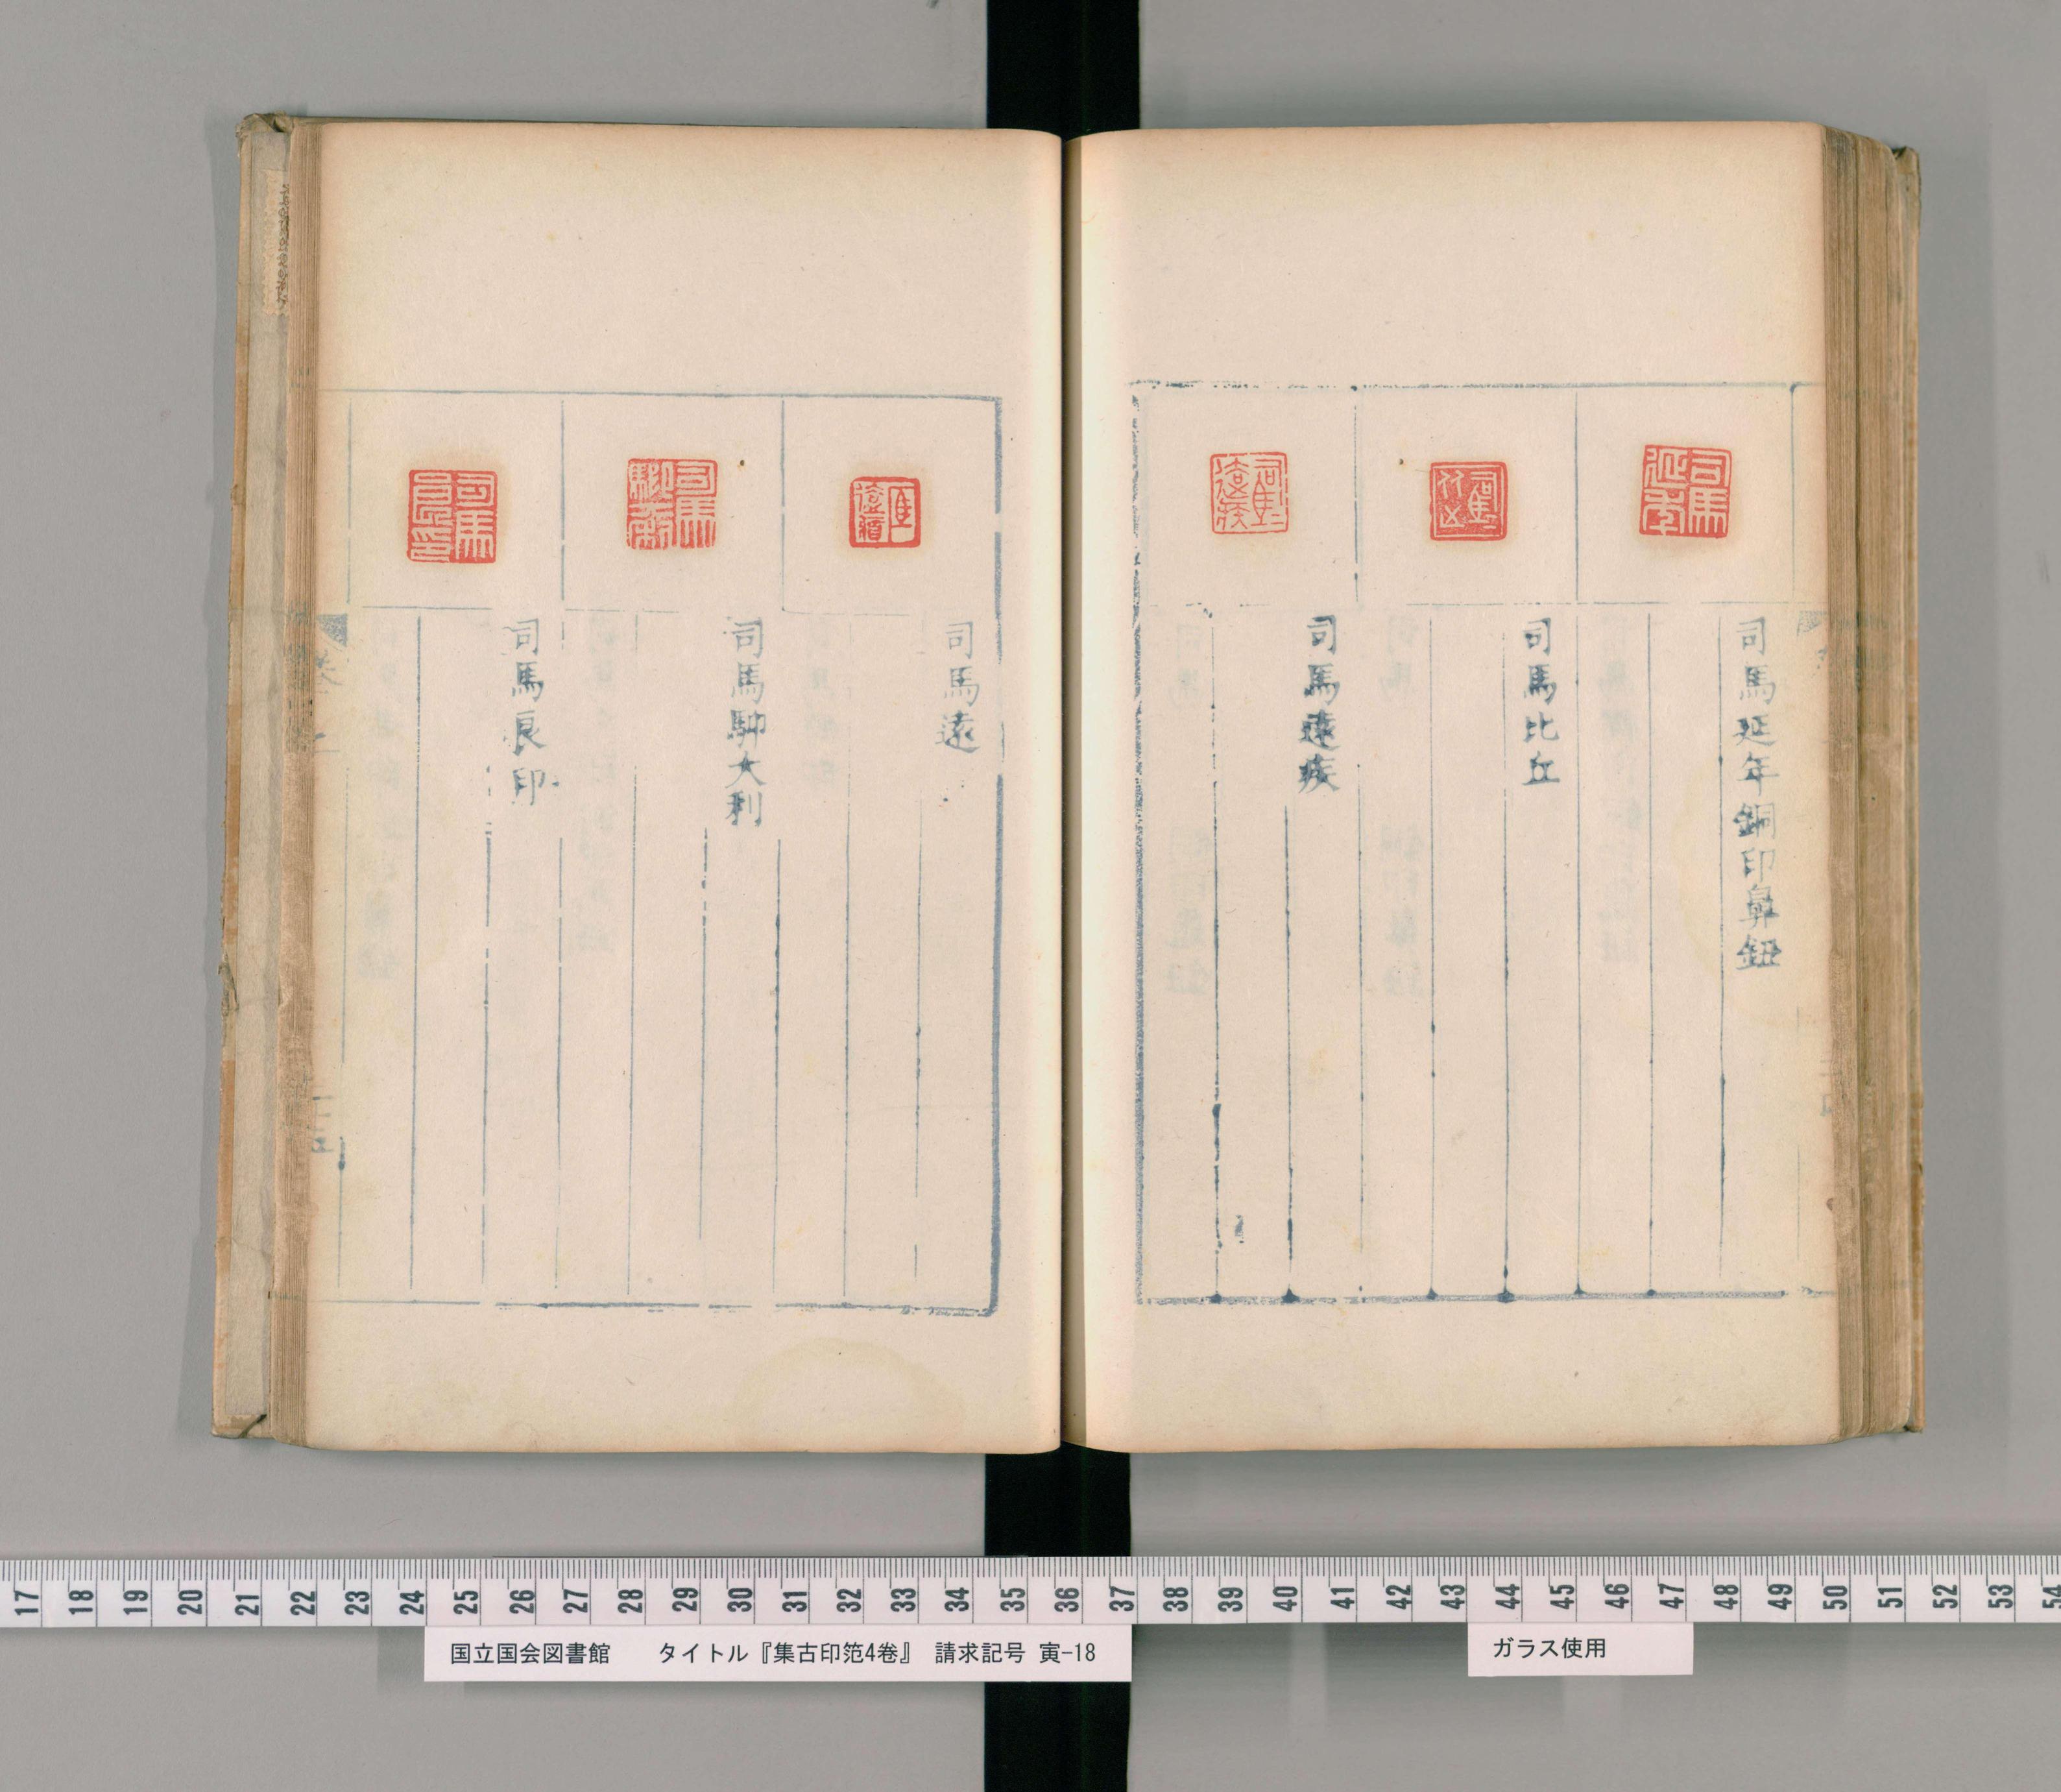 司馬延年銅印鼻鈕
司馬比丘
司馬遠疾
司馬遠
司馬大利
司馬良印
17 18 19 20 21 22 23 24 25 26 27 28 29 30 31 32 33 34 35 36 37 38 39 40 41 42 43 44 45 46 47 48 49 50 51 52 53 54
国立国会図書館 タイトル『集古印笵4巻』 請求記号 寅-18
ガラス使用